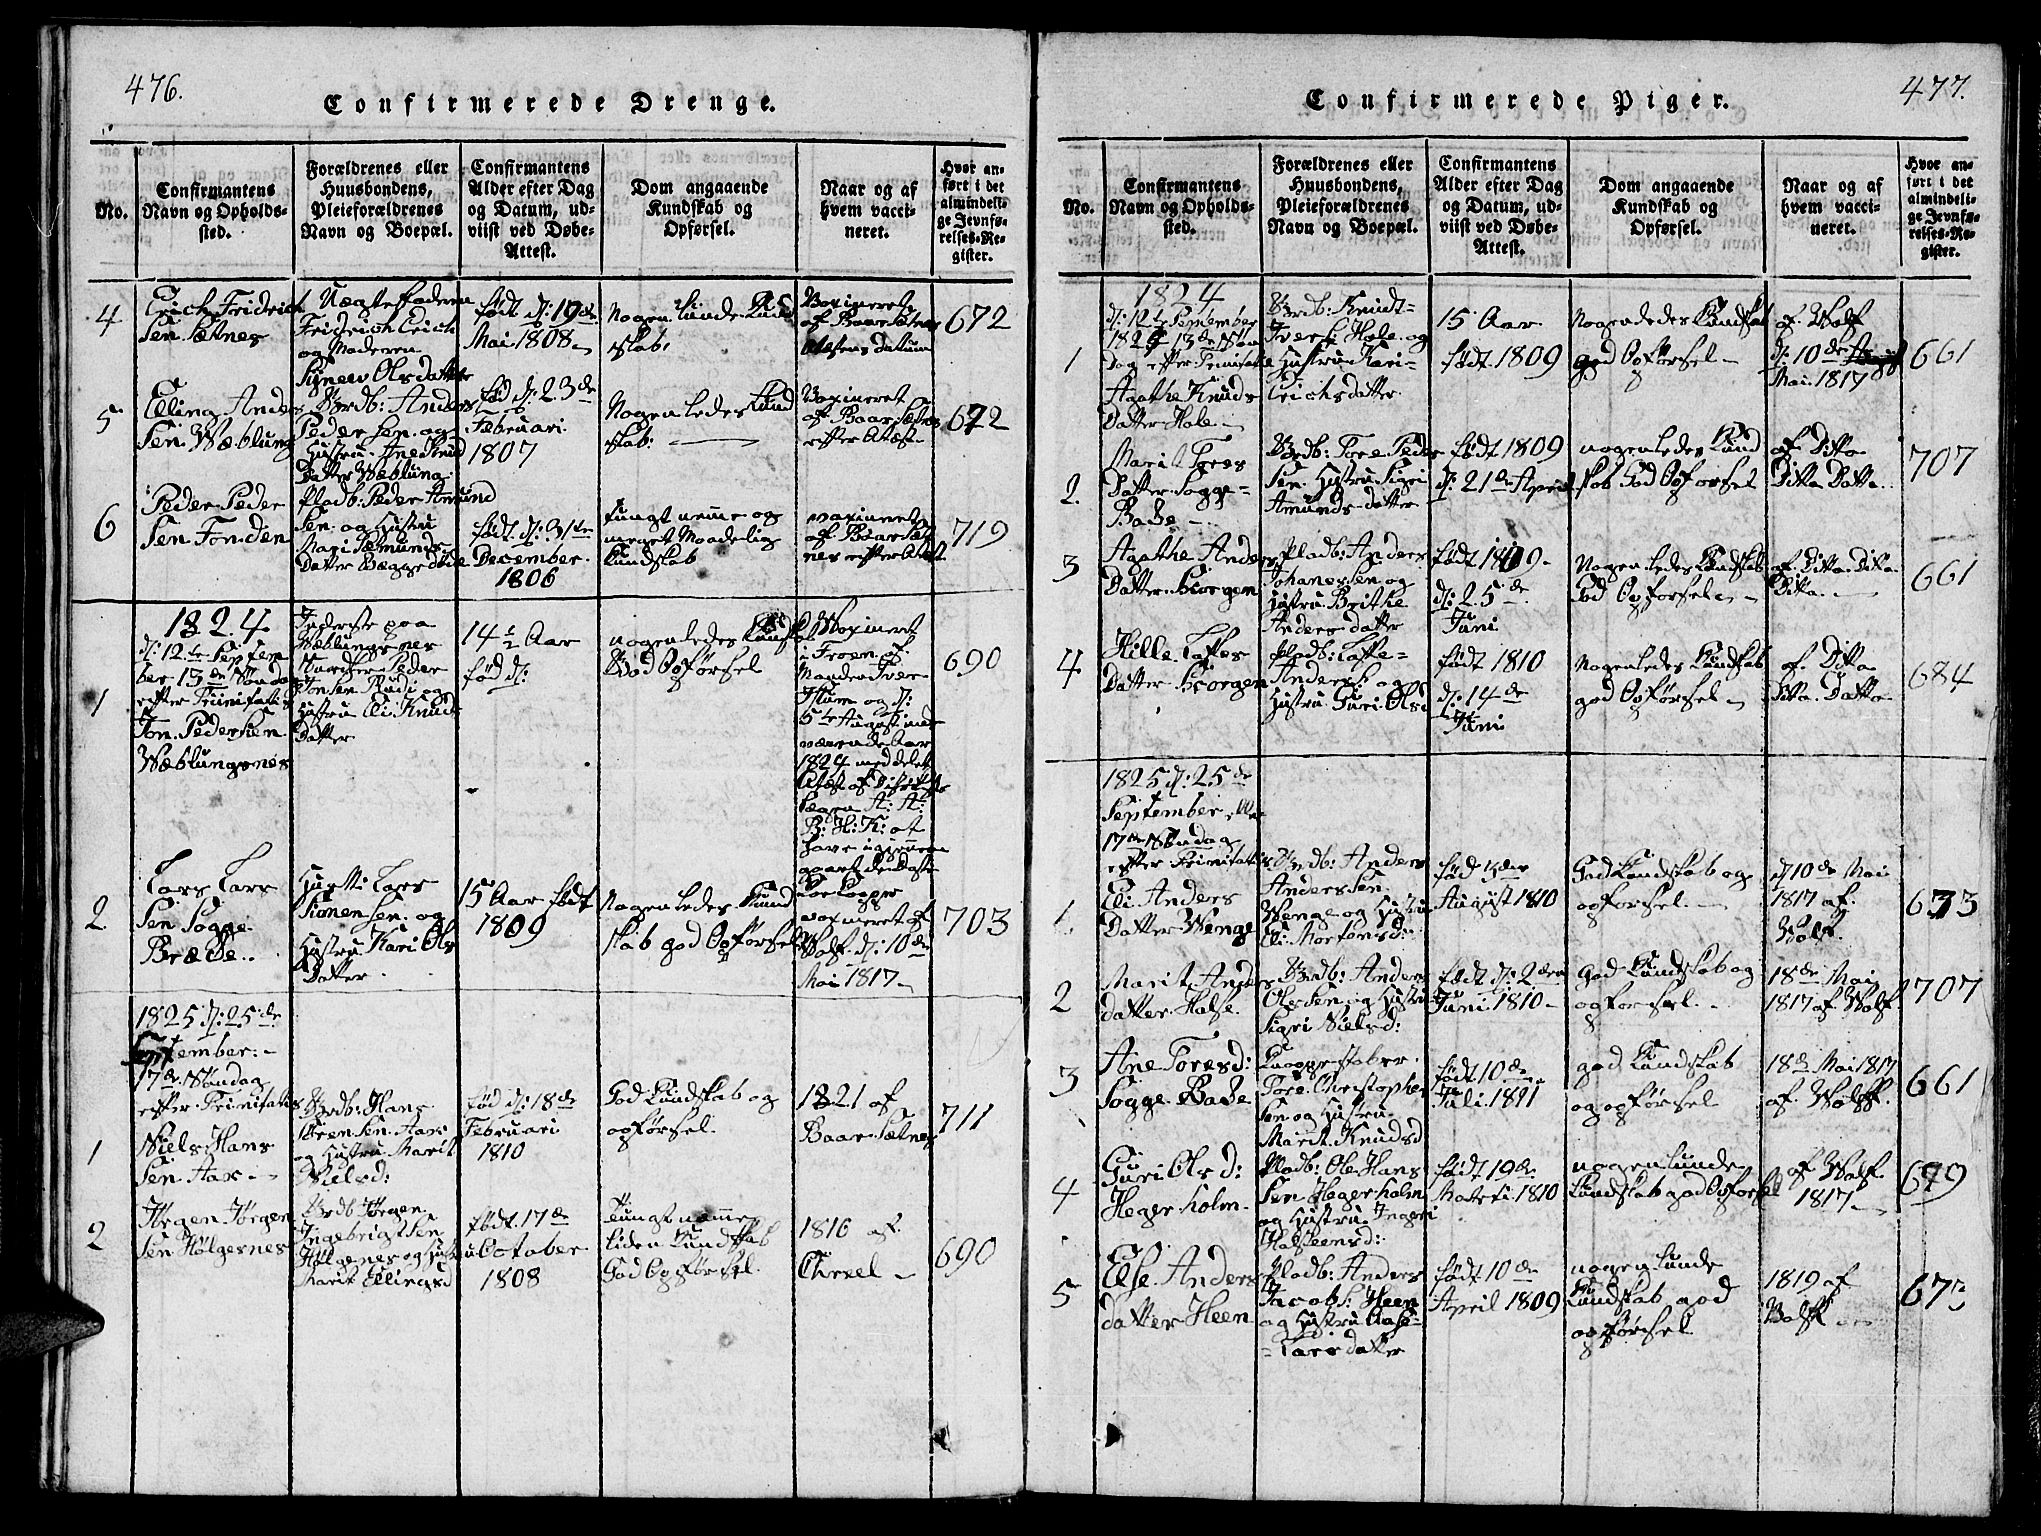 476.
Confirmerede Drenge.
No.
Confirmantens
Navn og Opholds-
sted.
Forældrenes eller
Huusbondens,
Pleieforældrenes
Navn og Boepæl.
Confirmantens
Alder efter Dag
og Datum, ud-
viist ved Døbe-
Attest.
Dom angaaende
Kundskab og
Opførsel.
Naar og af
hvem vacci-
neret.
Hvor an-
ført i det
almindeli-
ge Jevnfø-
relses-Re-
gister.
4
Erich Fridrich
Sen Sætnes
Uægte faderen
Fridrich Erich
og Moderen
Signew Olsdatter
født d: 19de
Mai 1808
Nogenlunde Kund
skab.
Voxineret
af Baar Sætnes
Datum
672
5
Elling Anders
Sen Wæblung
Brdb: Anders
Peder Sen og
Hustru Ane Knud
Datter Wæblung
fød d: 23de
Februari
1807
Nogenledes Kund
skab:
Voxineret
af Baar Sætnes
efter Atæst
672
6
Peder Peder
Sen Fonden
Pladb: Peder Amund
Sen og Hustru
Mari Sæmunds
Datter Begge døde
født d: 31te
December
1806
tungt nemme og
meget Maadelig
Kundskab
voxineret
af Baar Sæt
nes efter Atæst
719
1824
d: 12te Septem
ber 13de Søndag
efter Trinitatis
1
Jon Pedersen
Wæblungsnes
Inderste paa
Wæblungsnes
Peder
Jonsen Rudi og
Hustru Eli Knuds
Datter
14½ Aar
fød d:
nogenledes Kundsk
God Opførsel
Woxineret
i Froen af
Iver
Hum og d:
5te August
nærende Aar
1824 meddelet
Atæst af Distrikts
Lægen A: A:
B: H: K: at
have igjennem
gaaet de
Koekopper
690
2
Lars Lars
Sen Sogge
Bræde.
Husm: Lars
Simensen og
Hustru Kari Ols
Datter
15 Aar født
1809
Nogenledes Kund
skab god Opførsel
voxineret af
Wolf d: 10de
Mai 1817
703
1825 d: 25de
September
17de Søndag
efter Trinitatis
1
Niels Hans
Sen Aar
Brdb: Hans
Steensen Aar
og Hustru Marit
Nielsd:
fød d: 18de
Februari
1810
God Kundskab og
opførsel.
1821 af
Baar Sætnes
711
2
Jørgen Jørgen
Sen Hølgesnes
Brdb Jørgen
Ingebrigtsen
Hølgenes og Hust
Marit Ellingsd
født 17de
October
1808
Tungt nemme
liden Kundskab
God Opførsel.
1816 af
690
477.
Confirmerede Piger.
No.
Confirmantens
Navn og Opholds-
sted.
Forældrenes eller
Huusbondens,
Pleieforældrenes
Navn og Boepæl.
Confirmantens
Alder efter Dag
og Datum, ud-
viist ved Døbe-
Attest.
Dom angaaende
Kundskab og
Opførsel.
Naar og af
hvem vacci-
neret.
Hvor an-
ført i det
almindeli-
ge Jevnfø-
relses-Re-
gister.
1824
d: 12te September
1824 13de Søn
Dag efter Trinitatis
1
Agathe Knuds
Datter Hole
Brdb: Knudt
Ivers: Hole og
Hustru Kari
Erichsdatter
15 Aar
født 1809
Nogenledes Kundskab
god Opførsel
af Wolf
d: 10de
Mai 1817
661
2
Marit Tores
Datter Sogge
Bade
Brdb: Tore Peder
Sen Hustru Sigri
Amundsdatter
født 1809
d: 21de April
nogenledes Kund
skab God Opførsel
af Ditto
Ditto Datto
707
3
Agathe Anders
Datter Horgen
Pladb: Anders
Johanessen og
Hustru Brithe
Anders datter
født 1809
d: 25de
Juni
Nogenledes Kundskab
God Opførsel
af Ditto Ditto
Ditto
661
4
Hille Lasses
Datter Horgen
Pladb: Lasse
Anders: og
Hustru Guri Olsd
født 1810
d: 14de
Juni
Nogenledes Kundskab
god Opførsel
af Ditto
Ditto Datto
684
1825 d: 25de
September
17de Søndag
efter Trinitatis
1.
Eli Anders
Datter Wenge
Brdb: Anders
Anders Sen
Wenge og Hustru
Eli Mortensd:
fød 5de
August 1810
God Kundskab og
opførsel.
d 10de Mai
1817 af
Wolf.
673
2
Marit Anders
datter Halse.
Brdb: Anders
Olesen og Hustru
Sigri Nielsd:
født d: 2den
Juni 1810
God Kundskab og
opførsel.
18de Mai
1817 af Wolf
707
3
Ane Toresd:
Sogge Bade
Knoppestøber
Tore Christopher
Sen og Hustru
Marit Knudsd
født 10de
Juli 1811
god Kundskab
og opførsel
18de Mai 1817
af Wolff.
661
4
Guri Olsd:
Hegerholm
Pladb: Ole Hans
Sen Hegerholm
og Hustru Ingeri
Halsteensd:
født 19de
Martti 1810
nogenlunde
Kundskab god Opførsel
af Wolf
1817
679
5
Else Anders
datter Heen
Pladb: Anders
Jacobs: Heen
og Hustru Aase
Larsdatter
født 10de
April 1809
nogenlunde
Kundskab god
opførsel
1819 af
Wolf
673